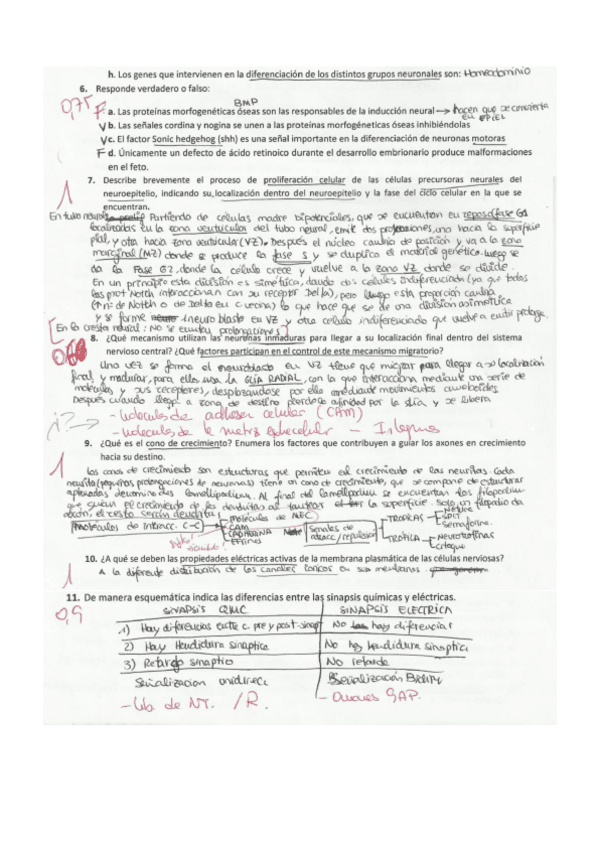 h. Los genes que intervienen en la diferenciación de los distintos grupos neuronales son: Homeodominio
6. Responde verdadero o falso:
0,75
BMP
F a. Las proteínas morfogenéticas óseas son las responsables de la inducción neural → hacen que se convierta en EPIEL
V b. Las señales cordina y nogina se unen a las proteínas morfogéneticas óseas inhibiéndolas
V c. El factor Sonic hedgehog (shh) es una señal importante en la diferenciación de neuronas motoras
F d. Únicamente un defecto de ácido retinoico durante el desarrollo embrionario produce malformaciones
en el feto.
1
7. Describe brevemente el proceso de proliferación celular de las células precursoras neurales del
neuroepitelio, indicando su localización dentro del neuroepitelio y la fase del ciclo celular en la que se
encuentran.
En tubo neural Partiendo de celulas madre bipotenciales, que se encuentran en reposo/fase G1
localizadas en la zona ventricular del tubo neural, emite dos prolongaciones, una hacia la superficie
pial, y otra hacia zona ventricular (VZ). Después el núcleo cambia de posición y va a la zona
marginal (MZ) donde se produce la fase S y se duplica el material genético. luego se
da la Fase G2, donde la célula crece y vuelve a la zona VZ donde se divide.
En un principio esta división es simétrica, dando dos celulas indiferenciada (ya que todas
las prot Notch interaccionan con su receptor Delta), pero luego esta proporción cambia
lo que hace que se de una división asimetrica
y se forme 1 neuroblasto en VZ y otra celula indiferenciado que vuelve a emitir prolong.
[En la cresta neural: No se emiten prolongaciones]
8. ¿Qué mecanismo utilizan las neuronas inmaduras para llegar a su localización final dentro del sistema
nervioso central? ¿Qué factores participan en el control de este mecanismo migratorio?
Una vez se forma el neuroblasto en VZ tiene que migrar para llegar a su localización
final y madurar, para ello usa la GLÍA RADIAL, con la que interacciona mediante una serie de
moleculas y sus receptores, desplazandose por ella mediante movimientos ameboides
Después cuando llega a zona destino pierde la afinidad por la glia, y se libera
¿? → - Moleculas de adhesion celular (CAM)
- Moleculas de la matriz extracelular - Integrinas
1
9. ¿Qué es el cono de crecimiento? Enumera los factores que contribuyen a guiar los axones en crecimiento
hacia su destino.
Los conos de crecimiento son estructuras que permiten el crecimiento de las neuritas. Cada
neurita (pequeñas prolongaciones de neuronas) tiene un cono de crecimiento, que se compone de estructuras
aplanadas denominadas lamellipodium. Al final del lamellipodium se encuentran los filopodium
que guian el crecimiento de las neuritas al tantear la superficie. Solo un filopodio da
axón, el resto serán dendritas
Moleculas de interacc. C-C
→ moleculas de MEC
→ CAM
→ CADHERINA
→ EFRINAS
Señales de atracc/repulsión
TROPICAS
Netrina
SLIT
Semaforina
TRÓFICA
Neurotrofinas
citoquc
10. ¿A qué se deben las propiedades eléctricas activas de la membrana plasmática de las células nerviosas?
1
A la diferente distribución de los canales ionicos en sus membranas
11. De manera esquemática indica las diferencias entre las sinapsis químicas y eléctricas.
0,9
SINAPSIS QMC SINAPSIS ELECTRICA
1) Hay diferencias entre c. pre y post-sinap No hay diferenciar
2) Hay Hendidura sinaptica No hay hendidura sinaptica
3) Retardo sinaptico No retardo
Señalizacion unidirecc Señalización Bidirecc
- Lib de NT. / R. - Uniones GAP.